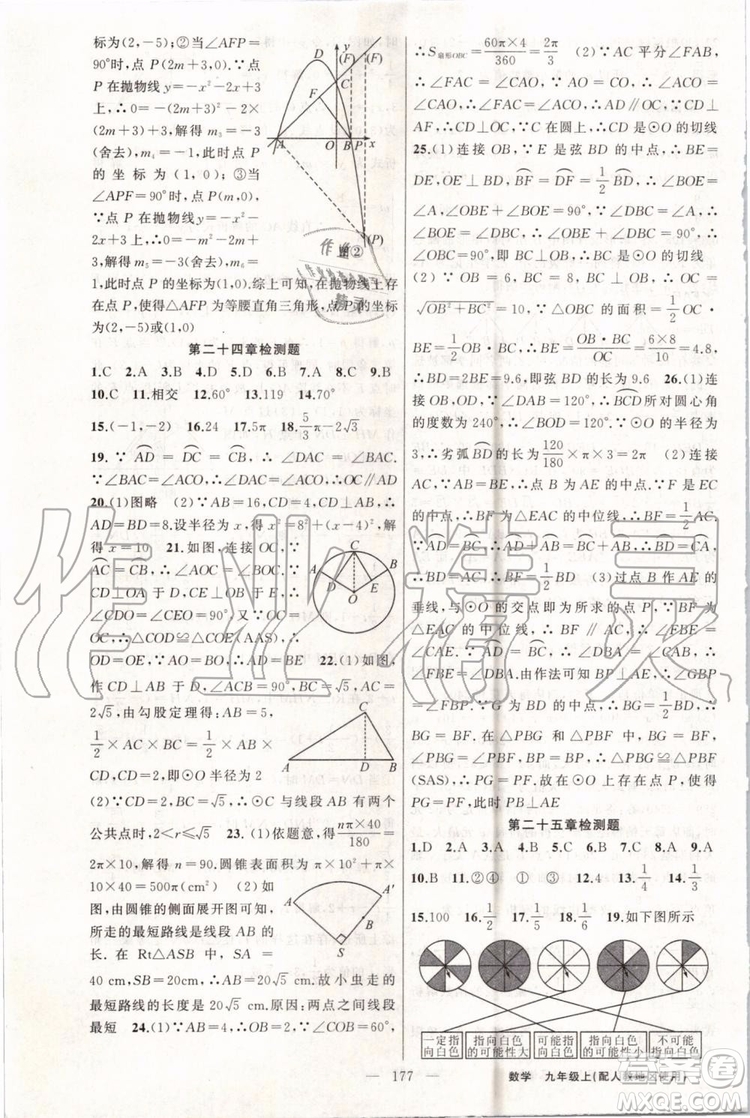 标为(2,-5);②当∠AFP=
90°时,P(2m+3,0).∵点
P在抛物线y=-x²-2x+3
上,∴0=-(2m+3)²-2×
(2m+3)+3,解得m₃=-3
(舍去),m₄=-1,此时点P
的坐标为(1,0);③当
∠APF=90°时,P(m,0).∵
点P在抛物线y=-x²-2x
+3上,∴0=-m²-2m+
3,解得m₅=-3(舍去),m₆=
1,此时点P的坐标为(1,0).综上可知,在抛物线上存
在点P,使得△AFP为等腰直角三角形,点P的坐标
为(2,-5)或(1,0)
第二十四章检测题
1.C 2.A 3.B 4.D 5.D 6.B 7.A 8.B 9.B
10.C 11.相交 12.60° 13.119 14.70°
15.(-1,-2) 16.24 17.5π 18.5/3π-2√3
19.∵AD=CD,∴AD=CD.∵AD=AD,∴
∠BAC=∠ACD,∴∠BAC=∠CAD
20.(1)图略 (2)∵AB=16,CD=4,CD⊥AB,∴
AD=BD=8.设半径为x,得x²=8²+(x-4)²,解
得x=10 21.如图,连接OC,∵
AC=CB,∴∠AOC=∠BOC.∵
CD⊥OA,CE⊥OB,∴
∠CDO=∠CEO=90°.∵OC=
OC,∴△COD≌△COE(AAS),∴
OD=OE,∴AD=BE 22.(1)如图,
作CD⊥AB于D,∠ACB=90°,BC=√5,AC=
2√5,由勾股定理得:AB=5,
1/2×AC×BC=1/2×AB×
CD,CD=2.即⊙O半径为2
(2)∵BC=√5,∴⊙O与线段AB有两个
公共点时,2<r≤√5 23.(1)依题意,得nπ×40/180=
2π×10,解得n=90.圆锥表面积=π×10²+π×
10×40=500π(cm²) (2)如
图,由圆锥的侧面展开图可得,小虫
所走的最短路线是线段AB的
长.在Rt△ASB中,SA=
40 cm,SB=20cm,∴AB=20√5(cm).故小虫走的
最短路线的长度是20√5cm.原因:两点之间线段
最短 24.(1)∵AB=4,∴OB=2.∵∠COB=60°,
∴S扇形OBC=60π×4/360=2π/3 (2)∵AC平分∠FAB,
∴∠FAC=∠CAO.∵AO=CO,∴∠ACO=
∠CAO,∴∠FAC=∠ACO,∴AD∥OC.∵CD⊥
AF,∴CD⊥OC.∵C在圆上,∴CD是⊙O的切线
25.(1)连接OB,∵E是弦BD的中点,∴BE=
DE,OE⊥BD,BF=DF=1/2BD,∴∠BOE=
∠A,∠OBE+∠BOE=90°,∵∠DBC=∠A,
∴∠BOE=∠DBC,∴∠OBE+∠DBC=90°,
∴∠OBC=90°,即BC⊥OB,∴BC是⊙O的切线
(2)∵OB=6,BC=8,BC⊥OB,∴OC=
√OB²+BC²=10.∵△OBC的面积=1/2OC·
BE=1/2OB·BC,∴BE=OB·BC/OC=6×8/10=4.8,
∴BD=2BE=9.6,即弦BD的长为9.6 26.(1)
∵∠DAB=120°,∴BCD所对圆心角
的度数为240°,∴∠BOD=120°.∵⊙O的半径为
3,∴劣弧BD的长为120/180×π×3=2π (2)连接
AC,∵AB=BE,∴点B为AE的中点.∵F是EC
的中点,∴BF为△EAC的中位线,∴BF=1/2AC.
∵AD=BC,∴AD+AB=BC+AB,∴BD=CA,
∴BD=AC,∴BF=1/2BD (3)过点B作AE的
垂线,与⊙O的交点即为所求的点P.∵BF为
△EAC的中位线,∴BF∥AC,∴∠FBE=
∠CAE.∵AD=BC,∴∠CAB=∠DBA,∴
∠FBE=∠DBA.由作法可知BP⊥AE,∴∠GBP
=∠FBP.∵G为BD的中点,∴BG=1/2BD,∴
BG=BF.∵BG=BF,∠PBG=∠PBF,BP=
BP,∠PBG=∠PBF,∴△PBG≌△PBF
(SAS),∴PG=PF,此时PB⊥AE
第二十五章检测题
1.D 2.A 3.A 4.C 5.B 6.A 7.C 8.A 9.A
10.B 11.②④ ① ③ 12.1/3 13.1/4 14.1/3
15.100 16.1/2 17.1/2 18.1/6 19.如下图所示
一定指向白色
指向白色的可能性大
可能指向白色
指向白色的可能性小
不可能指向白色
177
数学 九年级上(配人教地区使用)
作业精灵